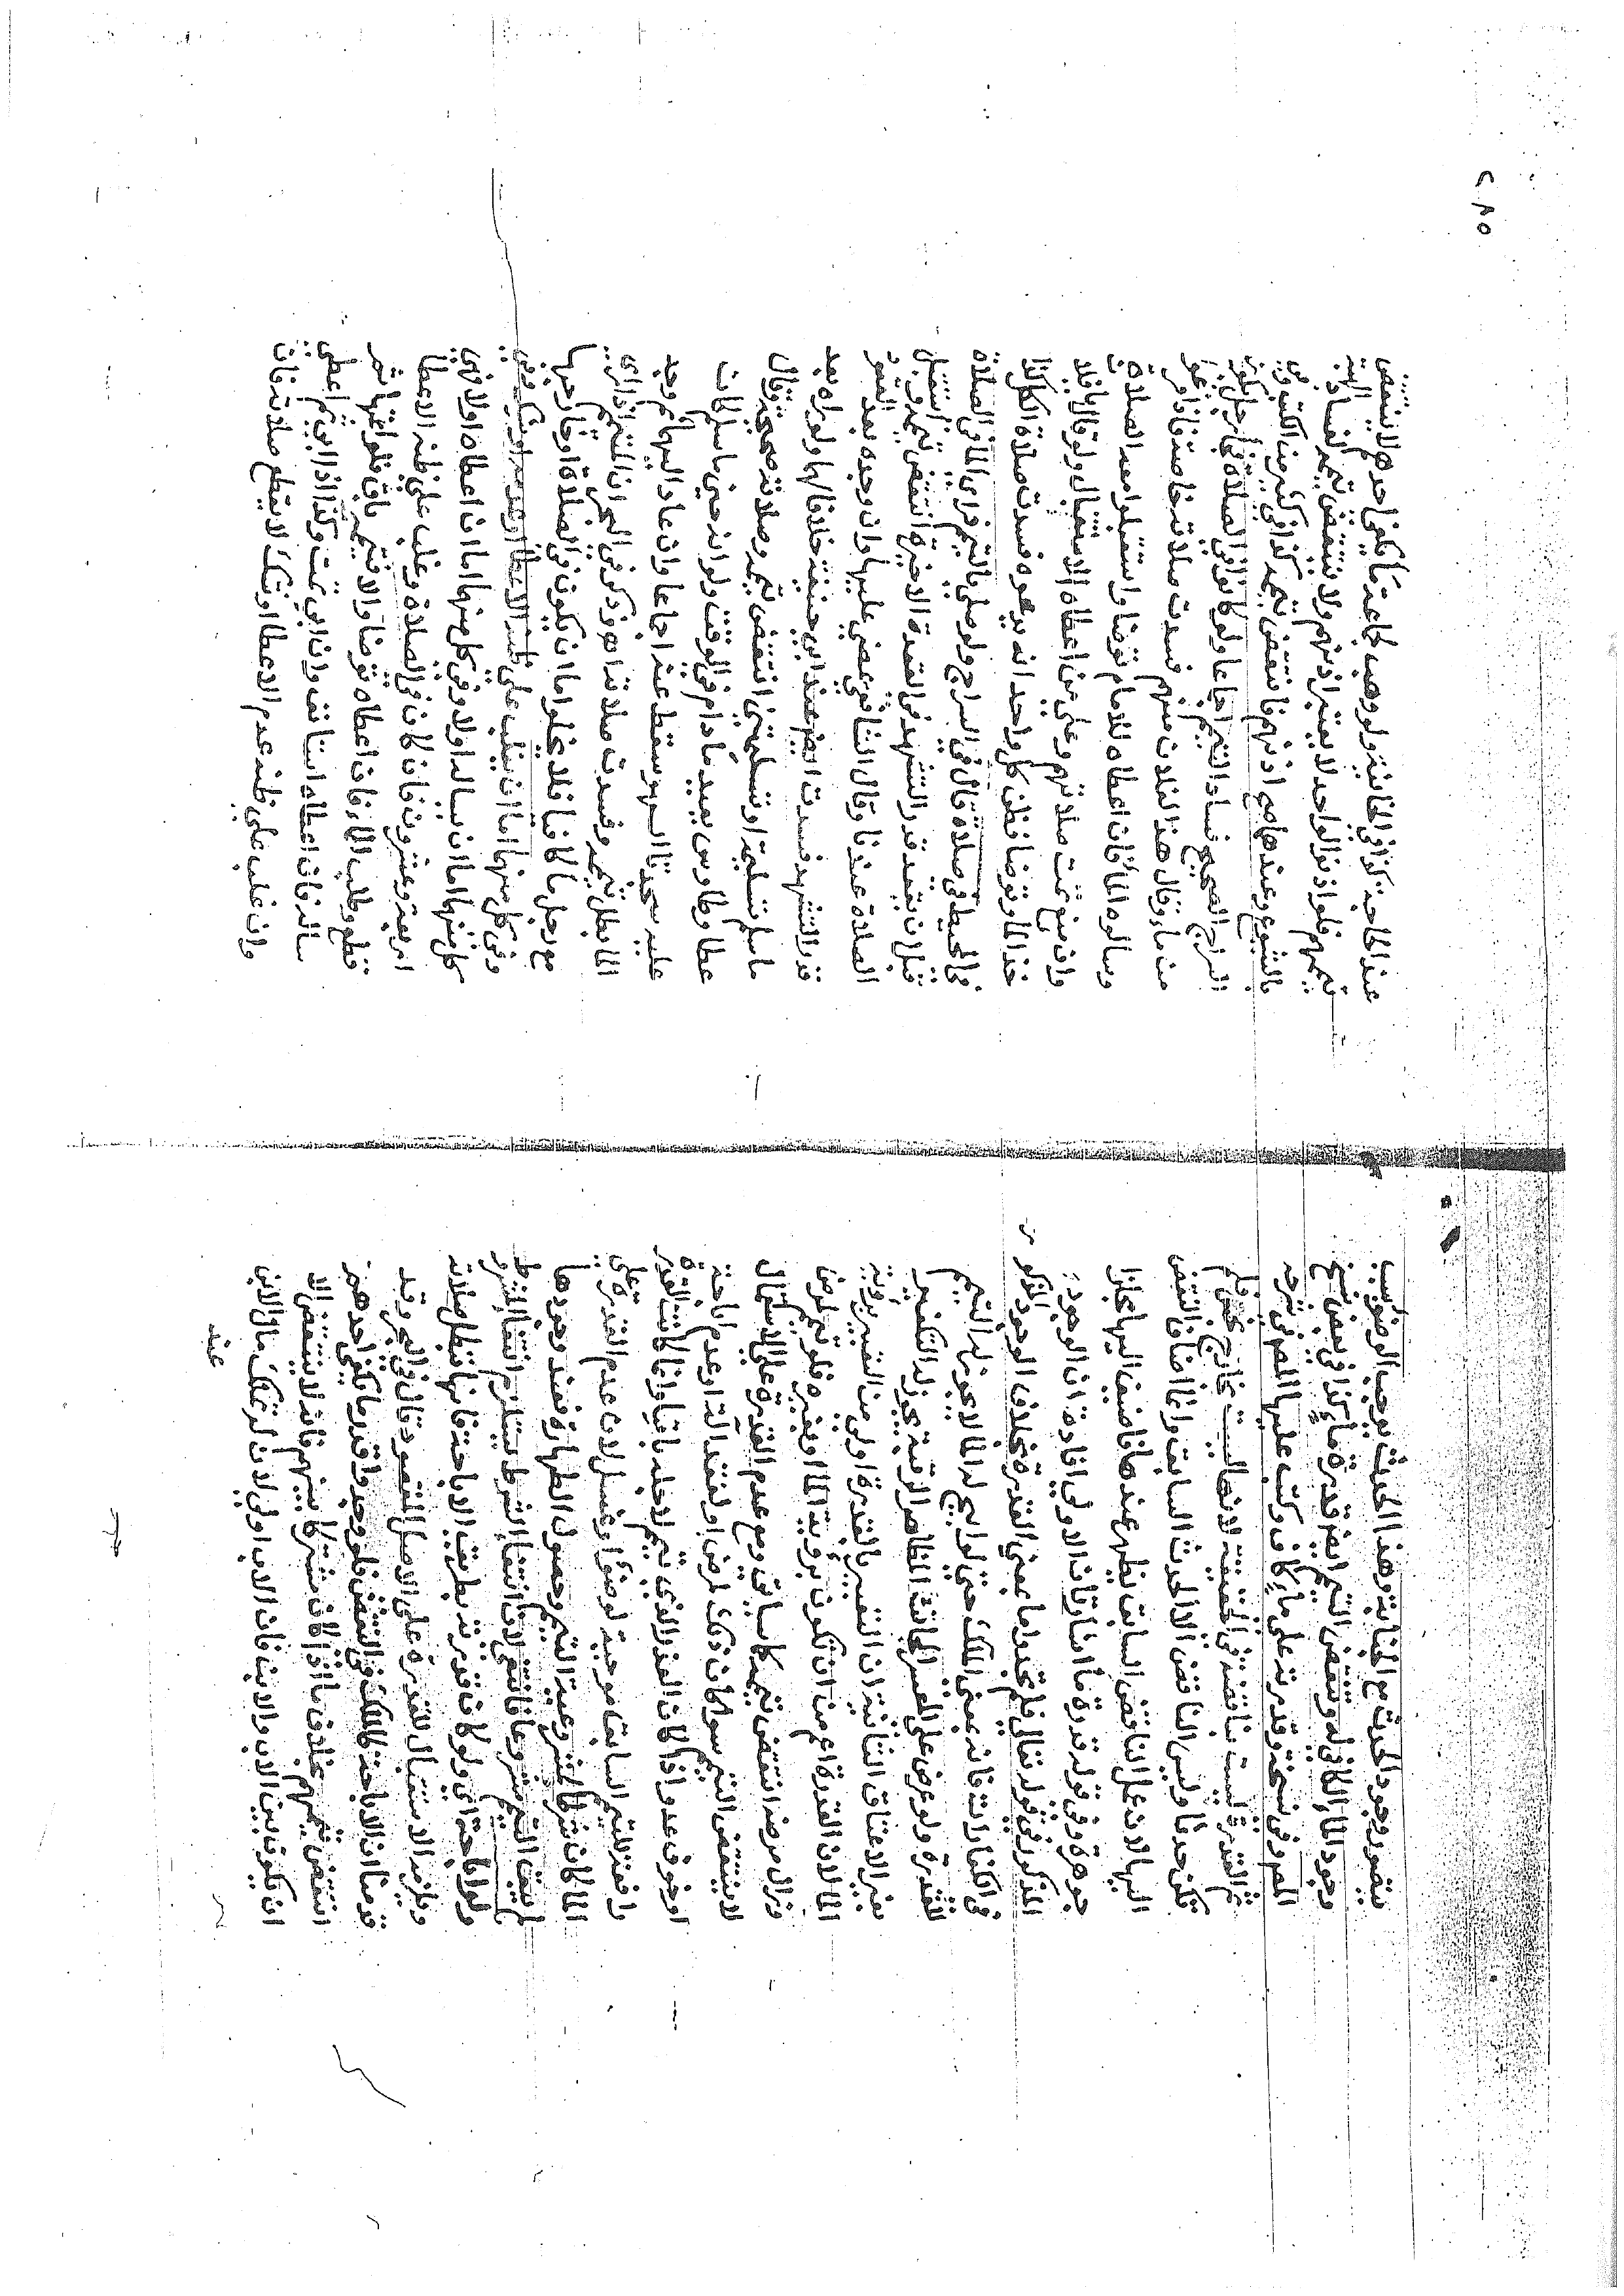 يتصور وجود الحدث مع الجنابة وهذا الحدث يوجب الوضوء ليست
وجود الماء الكافي له وتنقض التيمم ايضر قدرة ماء كذا في بعض نسخ
المص وفي نسخة وقدرته على ماء كاف وكتب عليها المص في شرحه
ثم القدرة ليست بناقضة في الحقيقة لانها ليست بخارج نجس فلم
تكن حدثا وليس الناقض الا الحدث السابق وانما اضاف النقض
اليها لان عمل الناقض السابق يظهر عندها فاضيف اليها مجازا
جوهرة وفي قوله قدرة ماء اشارتان الاولى افادة ان الوجود
المذكور في قوله تعالى فلم تجدوا ماء بمعنى القدرة بخلاف الوجود المذكور
في الكفارات فانه بمعنى الملك حتى لو ابيح له الماء لا يجوز له التيمم
للقدرة ولو عرض على المعسر الحانث المظاهر الرقبة يجوز له التكفير
بغير الاعتاق الثانية ان التعبير بالقدرة اولى من التعبير برؤية
الماء لان القدرة اعم من ان تكون برؤية الماء او بغيره فلو تيمم لمرض
وزال مرضه انتقض تيممه كما سياتي ومع عدم القدرة على الاستعمال
لا ينتقض التيمم سوا كان ذلك لمرض او لفقد آلة او عدم اباحة
او خوف عدو واذا كان العذر الذي تيمم لاجله باقيا واذا كانت القدرة
رافعة للتيمم السابق موجبة لوضوء او غسل عدم القدرة على
الماء كان شرط المشروعية التيمم وحصول الطهارة فعند وجودها
لم يبق التيمم مشروعا فانتفى لان انتفاء الشرط يستلزم انتفاء المشروط
ولو اباحة اي ولو كانت قدرته بطريق الاباحة فانها تبطل صلاته
ويلزمه الاستقبال للقدرة على الاصل المقصود قال في البحر وقد
قدمنا ان الاباحة كالملك في النقض فلو وجدوا قدر ما يكفي احدهم
انتقض تيممهم بخلاف ما اذا كان مشتركا بينهم فانه لا ينتقض الا
ان يكون بين الاب والابن فان الاب اولى لان له تملك مال الابن
عند
عند الحاجة كذا في الخانية ولو وهب لجماعة ما يكفي احدهم لا ينتقض
تيممهم فلو اذنوا لواحد لا يعتبر اذنهم ولا ينتقض تيممه لفساد الهبة
بالشيوع وعندهما صح اذنهم فانتقض تيممه كذا في كثير من الكتب وفي
السراج الصحيح فساد التيمم اجماعا ولو كانوا في الصلاة فجا رجل بكوز
من ماء وقال هذا لفلان منهم فسدت صلاته خاصة فاذا فرغوا
وسالوه الماء فان اعطاه للامام توضا واستقبلوا معه الصلاة
وان منع تمت صلاتهم وعلى من اعطاه الاستقبال ولو قال يا فلان
خذ الماء وتوضا فظن كل واحد انه يدعوه فسدت صلاة الكل كذا
في المحيط وفي صلاته قال في السراج ولو صلى بالتيمم فراى الماء في الصلاة
قبل ان يقعد قدر التشهد في القعدة الاخيرة انتقض تيممه واستقبل
الصلاة عندنا وقال الشافعي يمضي عليها وان وجده بعد القعود
قدر التشهد فسدت ايضر عند ابي حنيفة خلافا لهما ولو راه بعد
ما سلم تسليمة او تسليمتين انتقض تيممه وصلاته صحيحة وقال
عطا وطاوس يعيد ما دام في الوقت ولو انه حين ما سلم كان
عليه سجدتا السهو سقط عنه اجماعا وان عاد اليهما ثم وجد
الماء بطل تيممه وفسدت صلاته اهـ وذكر في البحر ان المتيمم اذا راى
مع رجل ماء كافيا فلا يخلو اما ان يكون في الصلاة او خارجها
وفي كل منهما اما ان يغلب على ظنه الاعطاء او عدمه او يشك وفي
كل منها اما ان يساله او لا وفي كل منهما اما ان اعطاه او لا فهي
اربعة وعشرون فان كان في الصلاة وغلب على ظنه الاعطا
قطع وطلب الماء فان اعطاه توضا والا فتيممه باق فلو اتمها ثم
ساله فان اعطاه استانف وان ابى تمت وكذا اذا ابى ثم اعطى
وان غلب على ظنه عدم الاعطا او شك لا يقطع صلاته فان